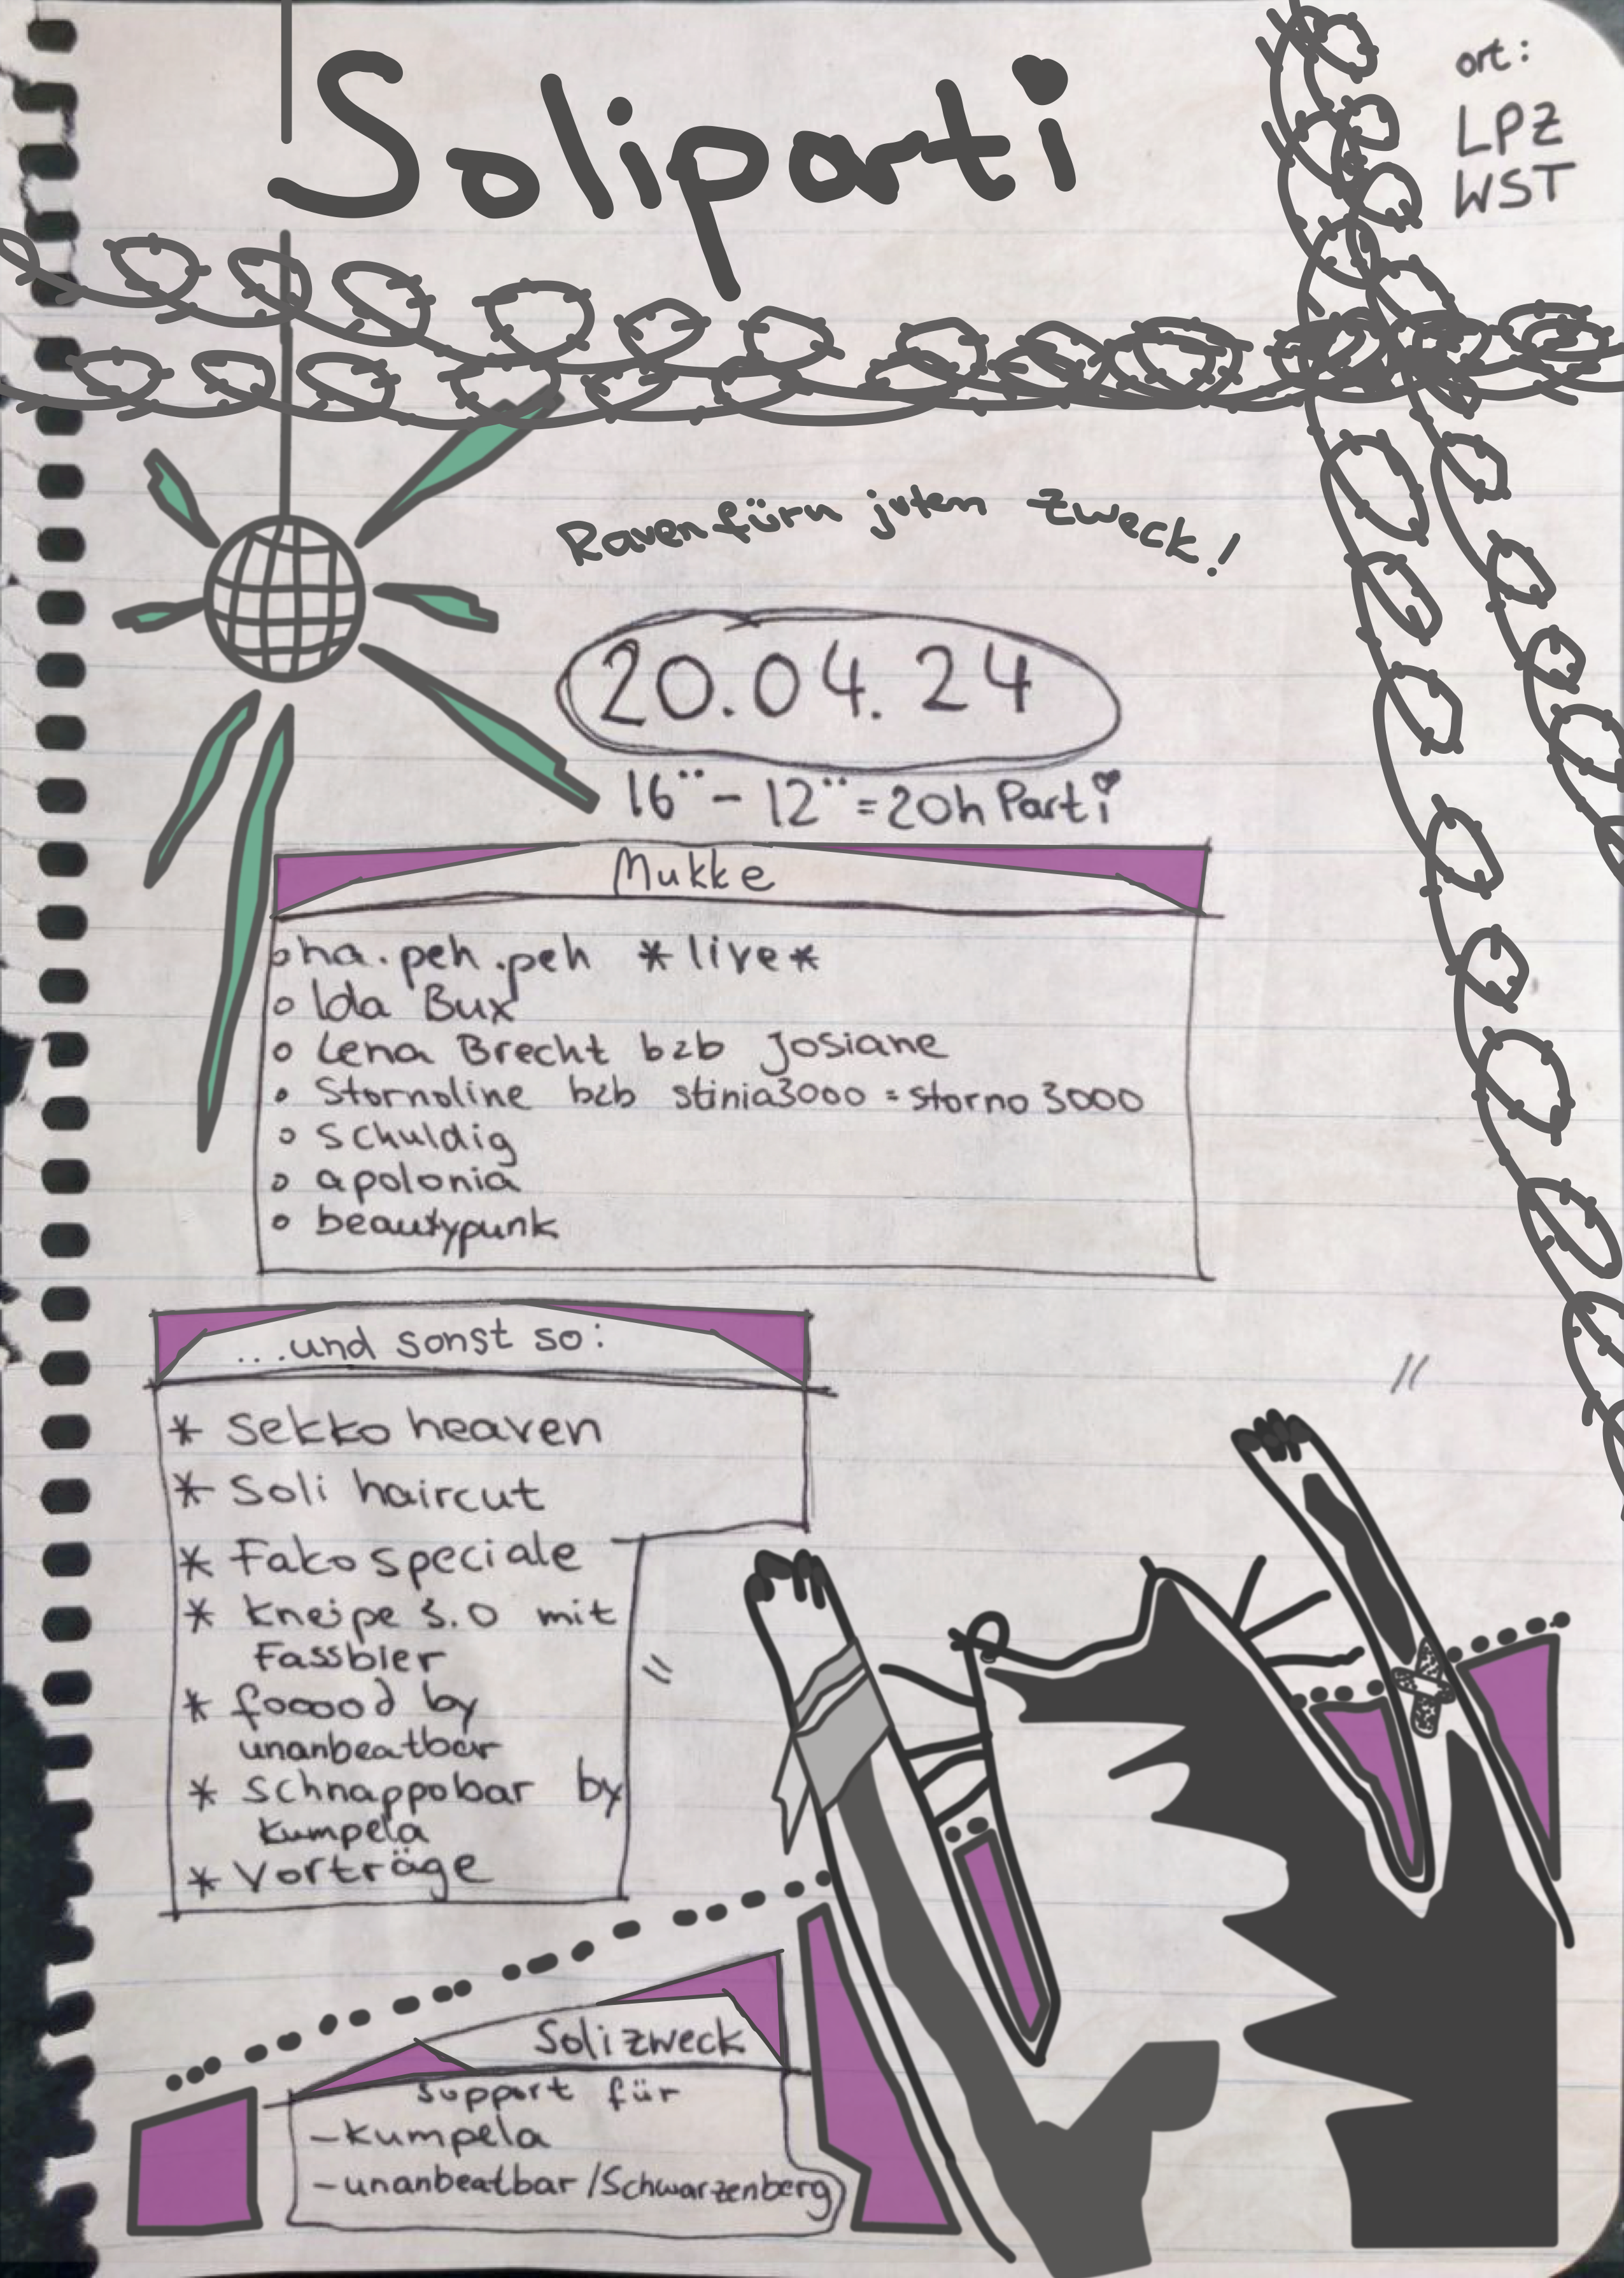 Soliparti
ort:
LPZ
WST
Raven fürn juten Zweck!
20.04.24
16¨ - 12¨ = 20h Parti
Mukke
o ha.peh.peh *live*
o Ida Bux
o Lena Brecht b2b Josiane
o Stornoline b2b stinia3000 = storno3000
o schuldig
o apolonia
o beautypunk
...und sonst so:
* Sekko heaven
* Soli haircut
* Fako speciale
* Kneipe 3.0 mit
Fassbier
* fooood by
unanbeatbar
* Schnappobar by
Kumpela
* Vorträge
Solizweck
support für
- Kumpela
- unanbeatbar /Schwarzenberg